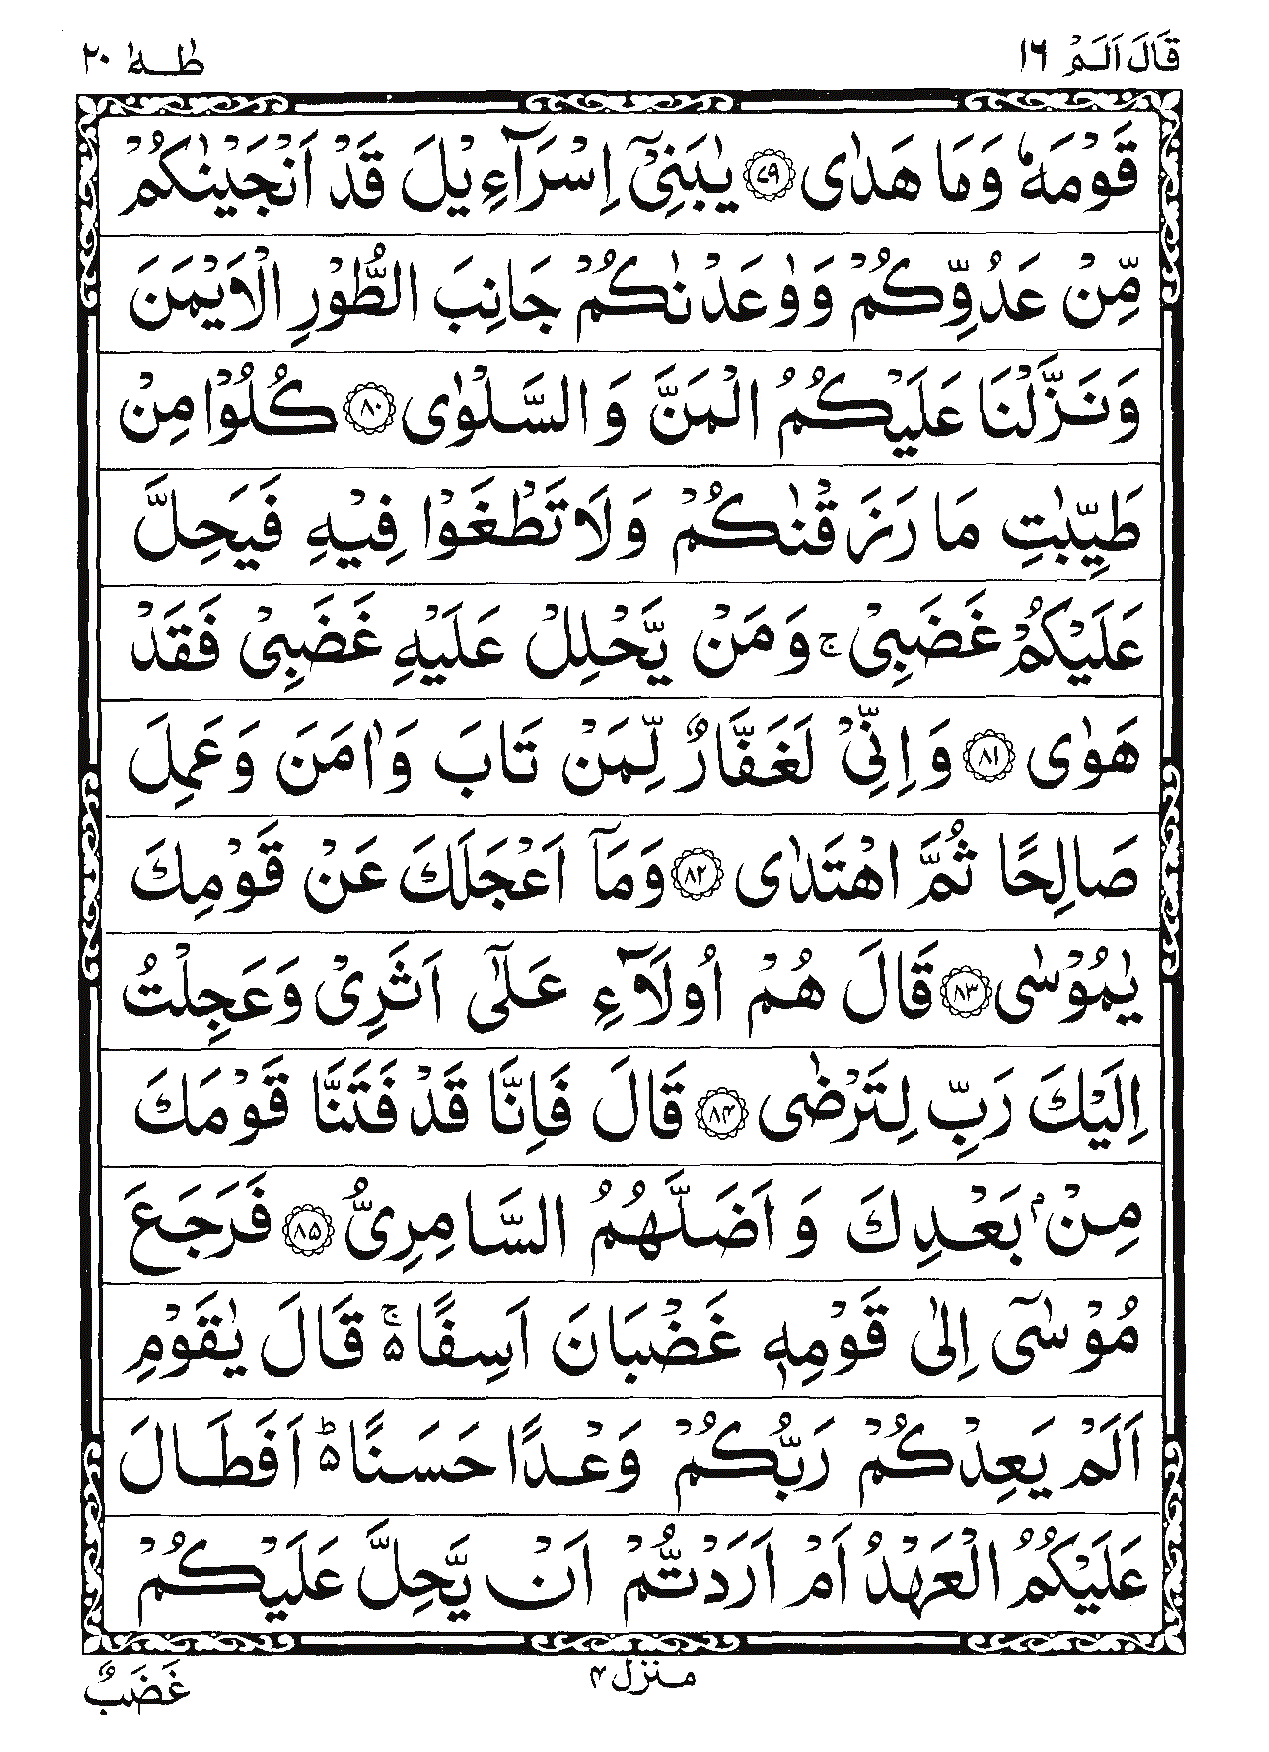 قَالَ اَلَمْ ١٦
طٰهٰ ٢٠
قَوْمَهٗ وَمَا هَدٰى ﴿٧٩﴾ يٰبَنِىْۤ اِسْرَآءِيْلَ قَدْ اَنْجَيْنٰكُمْ
مِّنْ عَدُوِّكُمْ وَوٰعَدْنٰكُمْ جَانِبَ الطُّوْرِ الْاَيْمَنَ
وَنَزَّلْنَا عَلَيْكُمُ الْمَنَّ وَ السَّلْوٰى ﴿٨٠﴾ كُلُوْا مِنْ
طَيِّبٰتِ مَا رَزَقْنٰكُمْ وَلَا تَطْغَوْا فِيْهِ فَيَحِلَّ
عَلَيْكُمْ غَضَبِىْ ۚ وَمَنْ يَّحْلِلْ عَلَيْهِ غَضَبِىْ فَقَدْ
هَوٰى ﴿٨١﴾ وَ اِنِّىْ لَغَفَّارٌ لِّمَنْ تَابَ وَاٰمَنَ وَعَمِلَ
صَالِحًا ثُمَّ اهْتَدٰى ﴿٨٢﴾ وَمَاۤ اَعْجَلَكَ عَنْ قَوْمِكَ
يٰمُوْسٰى ﴿٨٣﴾ قَالَ هُمْ اُولَآءِ عَلٰٓى اَثَرِىْ وَعَجِلْتُ
اِلَيْكَ رَبِّ لِتَرْضٰى ﴿٨٤﴾ قَالَ فَاِنَّا قَدْ فَتَنَّا قَوْمَكَ
مِنْۢ بَعْدِكَ وَ اَضَلَّهُمُ السَّامِرِىُّ ﴿٨٥﴾ فَرَجَعَ
مُوْسٰٓى اِلٰى قَوْمِهٖ غَضْبَانَ اَسِفًا ۵ۚ قَالَ يٰقَوْمِ
اَلَمْ يَعِدْكُمْ رَبُّكُمْ وَعْدًا حَسَنًا ۵ؕ اَفَطَالَ
عَلَيْكُمُ الْعَهْدُ اَمْ اَرَدْتُّمْ اَنْ يَّحِلَّ عَلَيْكُمْ
منزل ۴
غَضَبٌ